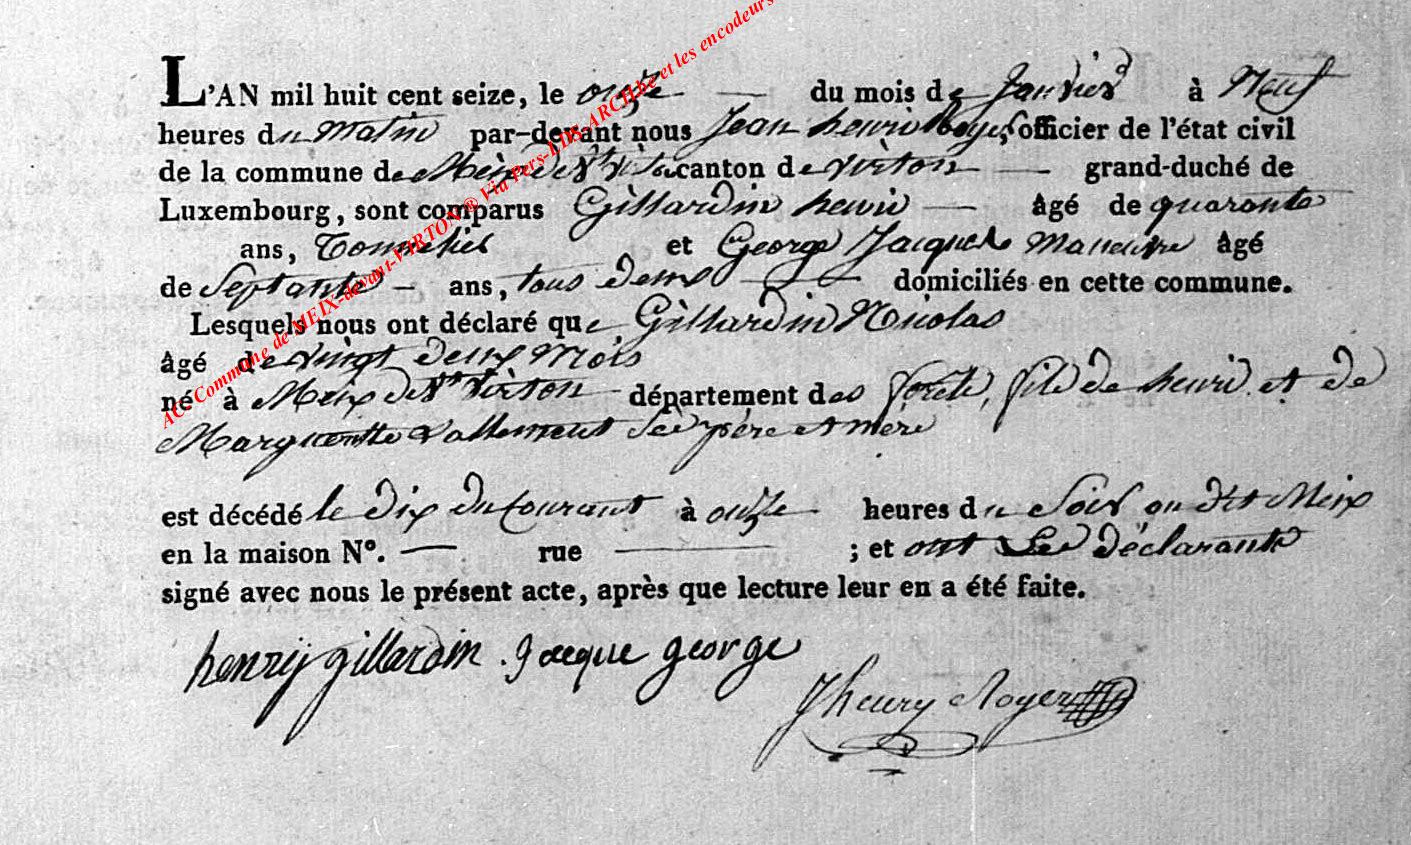 L'AN mil huit cent seize, le onze du mois de Janvier à Neuf
heures du Matin par-devant nous Jean henri officier de l'état civil
de la commune de Meix devt virton canton de virton grand-duché de
Luxembourg, sont comparus Gillardin henri âgé de quarante
ans, Tonnelier et George Jacques Maneuvre âgé
de Septante ans, tous deux domiciliés en cette commune.
Lesquels nous ont déclaré que Gillardin Nicolas
âgé de vingt deux Mois
né à Meix devt virton département des forêts, fils de henri et de
Margueritte Lallement Sès père et mère
est décédé le dix du Courant à onze heures du Soir au dit Meix
en la maison N°. rue ; et ont Les Déclarants
signé avec nous le présent acte, après que lecture leur en a été faite.
henrij gillardin . Jacque george
J henry Noyer
AC. Commune de MEIX-devant-VIRTON ® Via Pers-LUX-ARCH.be et les encodeurs